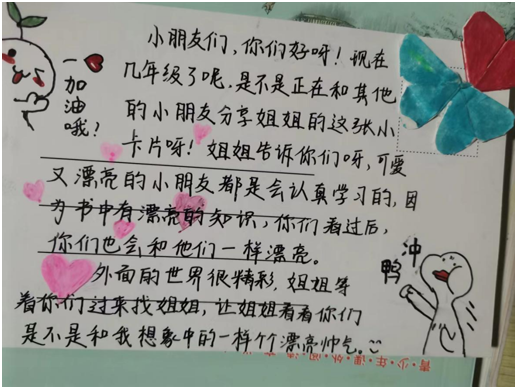 小朋友们，你们好呀！现在
几年级了呢，是不是正在和其他
的小朋友分享姐姐的这张小
卡片呀！姐姐告诉你们呀，可爱
又漂亮的小朋友都是会认真学习的，因
为书中有漂亮的知识，你们看过后，
你们也会和他们一样漂亮。
外面的世界很精彩，姐姐等
着你们过来找姐姐，让姐姐看看你们
是不是和我想象中的一样个个漂亮帅气。
一
加
油
哦？
冲
鸭
青少年课外阅